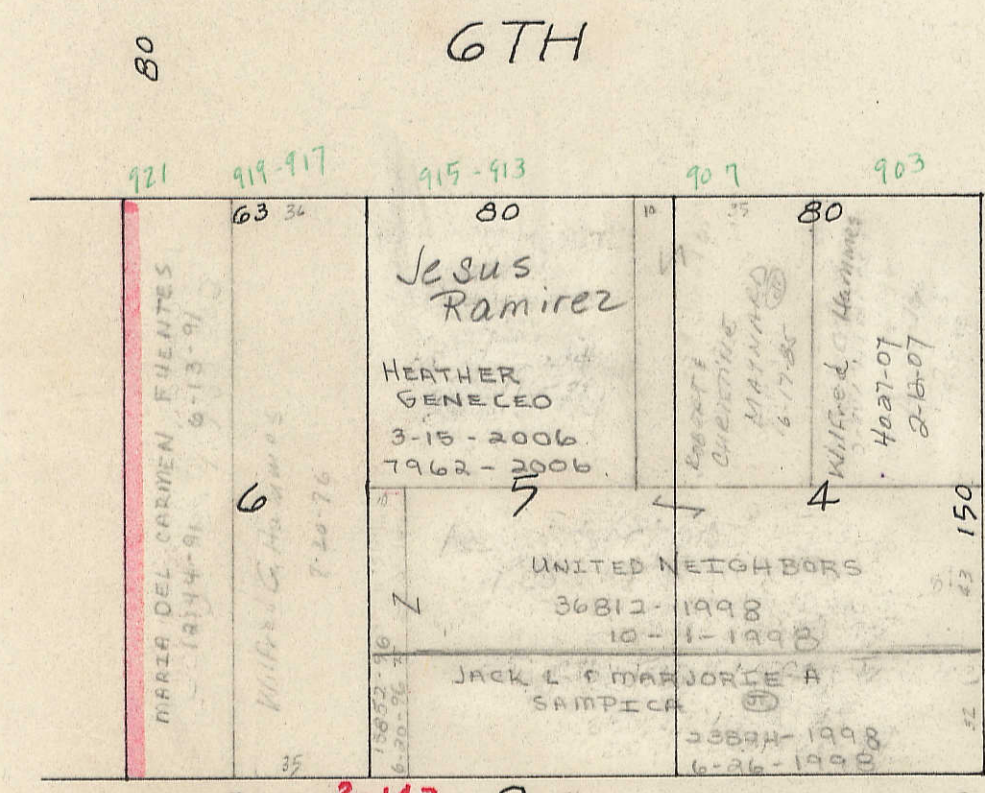 80
6TH
921
919-917
915-913
907
903
63
36
80
10
35
80
MARIA DEL CARMEN FUENTES
6-13-91
6
7-20-76
35
Jesus
Ramirez
HEATHER
GENECEO
3-15-2006
7962-2006
5
ROBERT &
CHRISTINE
MAYNARD
6-17-85
Wilfred Hammes
4027-07
4
150
UNITED NEIGHBORS
36812-1998
10-1-1998
63
JACK L & MARJORIE A
SAMPICA
23894-1998
6-26-1998
32
15852-96